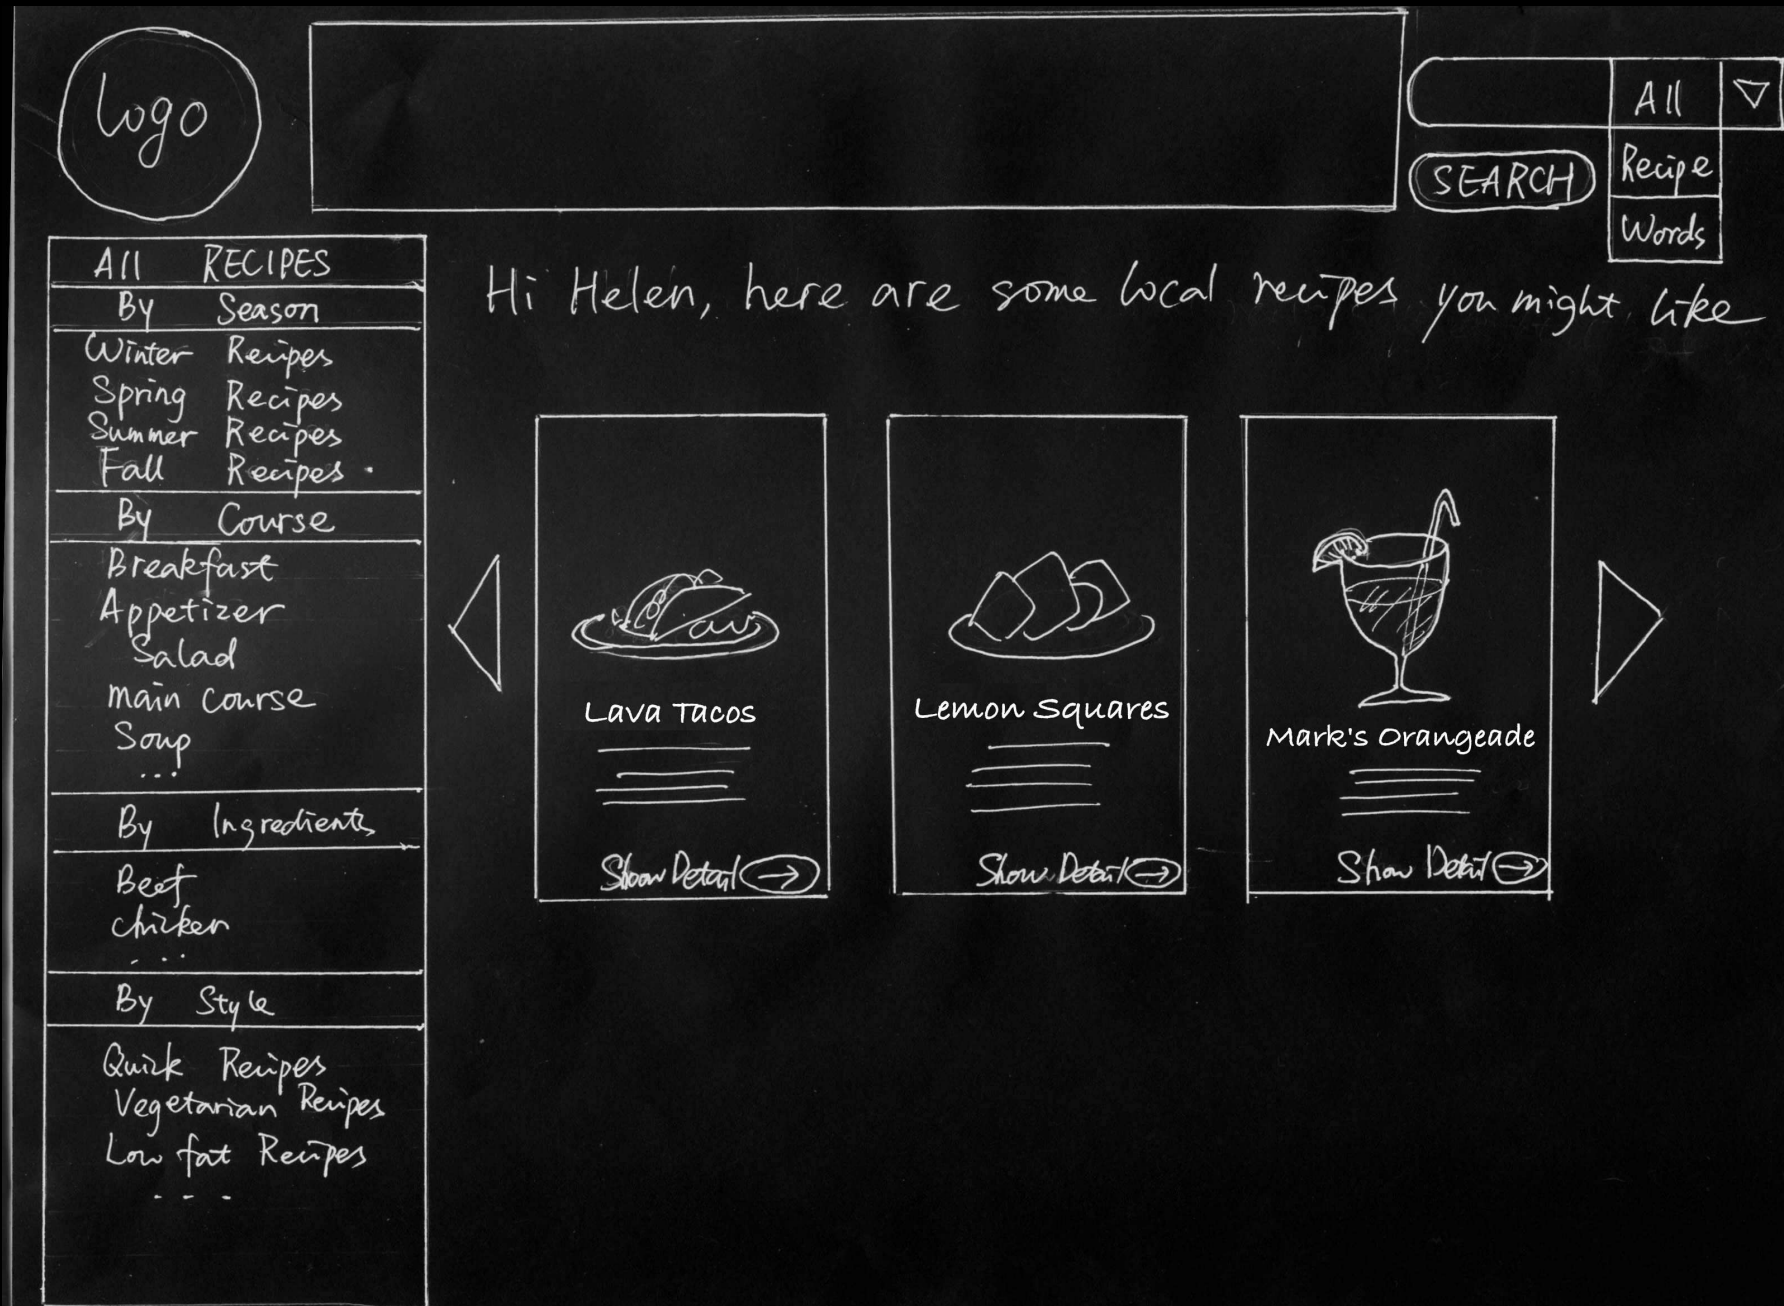 Logo
All
Recipe
Words
SEARCH
All RECIPES
By Season
Winter Recipes
Spring Recipes
Summer Recipes
Fall Recipes
By Course
Breakfast
Appetizer
Salad
main course
Soup
...
By Ingredients
Beef
chicken
...
By Style
Quick Recipes
Vegetarian Recipes
Low fat Recipes
...
Hi Helen, here are some local recipes you might like
Lava Tacos
Show Detail
Lemon Squares
Show Detail
Mark's Orangeade
Show Detail